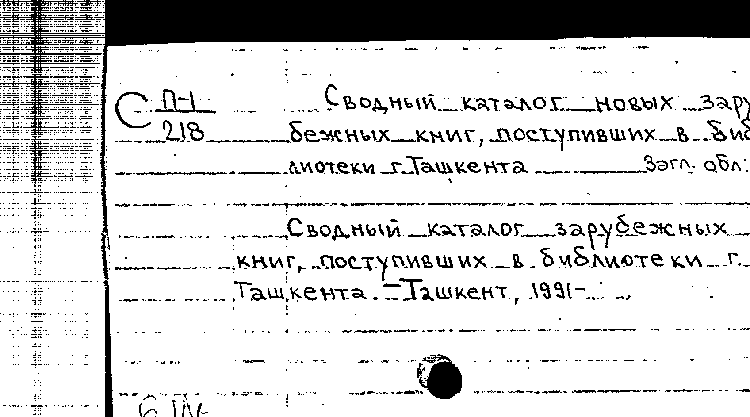 С П-1 Сводный каталог новых зару
218 бежных книг, поступивших в биб
лиотеки г. Ташкента Загл. обл.
Сводный каталог зарубежных
книг, поступивших в библиотеки г.
Ташкента. – Ташкент, 1991-